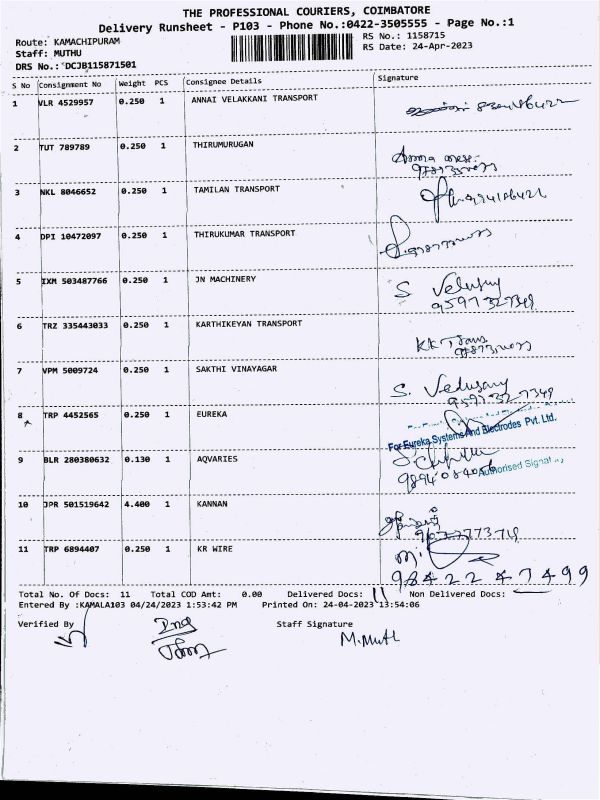 THE PROFESSIONAL COURIERS, COIMBATORE
Delivery Runsheet - P103 - Phone No.:0422-3505555 - Page No.:1
Route: KAMACHIPURAM
RS No.: 1158715
Staff: MUTHU
RS Date: 24-Apr-2023
DRS No.: DCJB115871501
S No Consignment No Weight PCS Consignee Details Signature
1 VLR 4529957 0.250 1 ANNAI VELAKKANI TRANSPORT
2 TUT 789789 0.250 1 THIRUMURUGAN
3 NKL 8046652 0.250 1 TAMILAN TRANSPORT
4 DPI 10472097 0.250 1 THIRUKUMAR TRANSPORT
5 IXM 503487766 0.250 1 JN MACHINERY S Velusamy
9597327349
6 TRZ 335443033 0.250 1 KARTHIKEYAN TRANSPORT KK Trans
7 VPM 5009724 0.250 1 SAKTHI VINAYAGAR S. Velusamy
9597327349
8 TRP 4452565 0.250 1 EUREKA
For Eureka Systems And Electrodes Pvt. Ltd.
9 BLR 280380632 0.130 1 AQVARIES
Authorised Signat
10 JPR 501519642 4.400 1 KANNAN
11 TRP 6894407 0.250 1 KR WIRE
98422 47499
Total No. Of Docs: 11 Total COD Amt: 0.00 Delivered Docs: 11 Non Delivered Docs:
Entered By :KAMALA103 04/24/2023 1:53:42 PM Printed On: 24-04-2023 13:54:06
Verified By Staff Signature
M.Muth